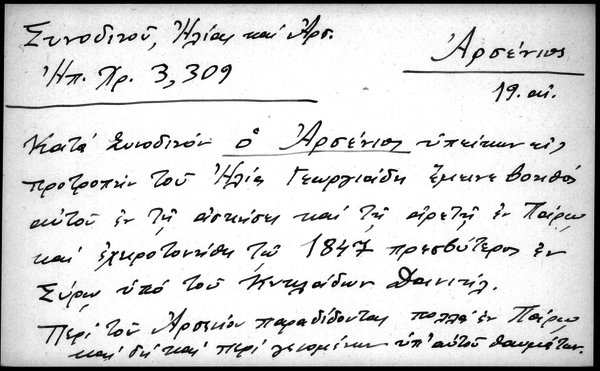 Συνοδινοῦ, Ἠλίας καὶ Ἀρσ.
Ἠπ. Χρ. 3, 309
Ἀρσένιος
19. αἰ.
Κατά Συνοδινόν ὁ Ἀρσένιος ὑπείκων εἰς
προτροπήν τοῦ Ἠλία Γεωργιάδη ἔμεινε βοηθός
αὐτοῦ ἐν τῇ ἀσκήσει καί τῇ ἀρετῇ ἐν Πάρῳ
καί ἐχειροτονήθη τῷ 1847 πρεσβύτερος ἐν
Σύρῳ ὑπό τοῦ Κυκλάδων Δανιήλ.
Περί τοῦ Ἀρσενίου παραδίδονται πολλά ἐν Πάρῳ
καί δή καί περί γενομένων ὑπ' αὐτοῦ θαυμάτων.